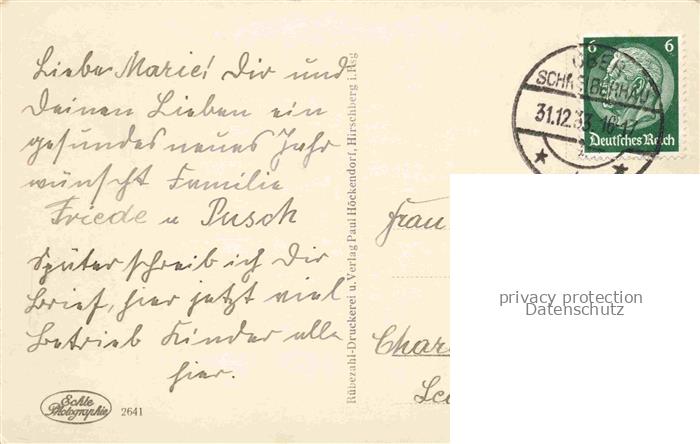 Liebe Marie! Dir und
Deinen Lieben ein
gesundes neues Jahr
wünscht Familie
Friede u Pusch
Später schreib ich Dir
Brief, hier jetzt viel
Betrieb Kinder alle
hier.
Echte
Photographie
2641
Rübezahl-Druckerei u. Verlag Paul Höckendorf, Hirschberg i. Rsg
6 6
Deutsches Reich
OBER
SCHREIBERHAU
31.12.33
Frau
privacy protection
Datenschutz